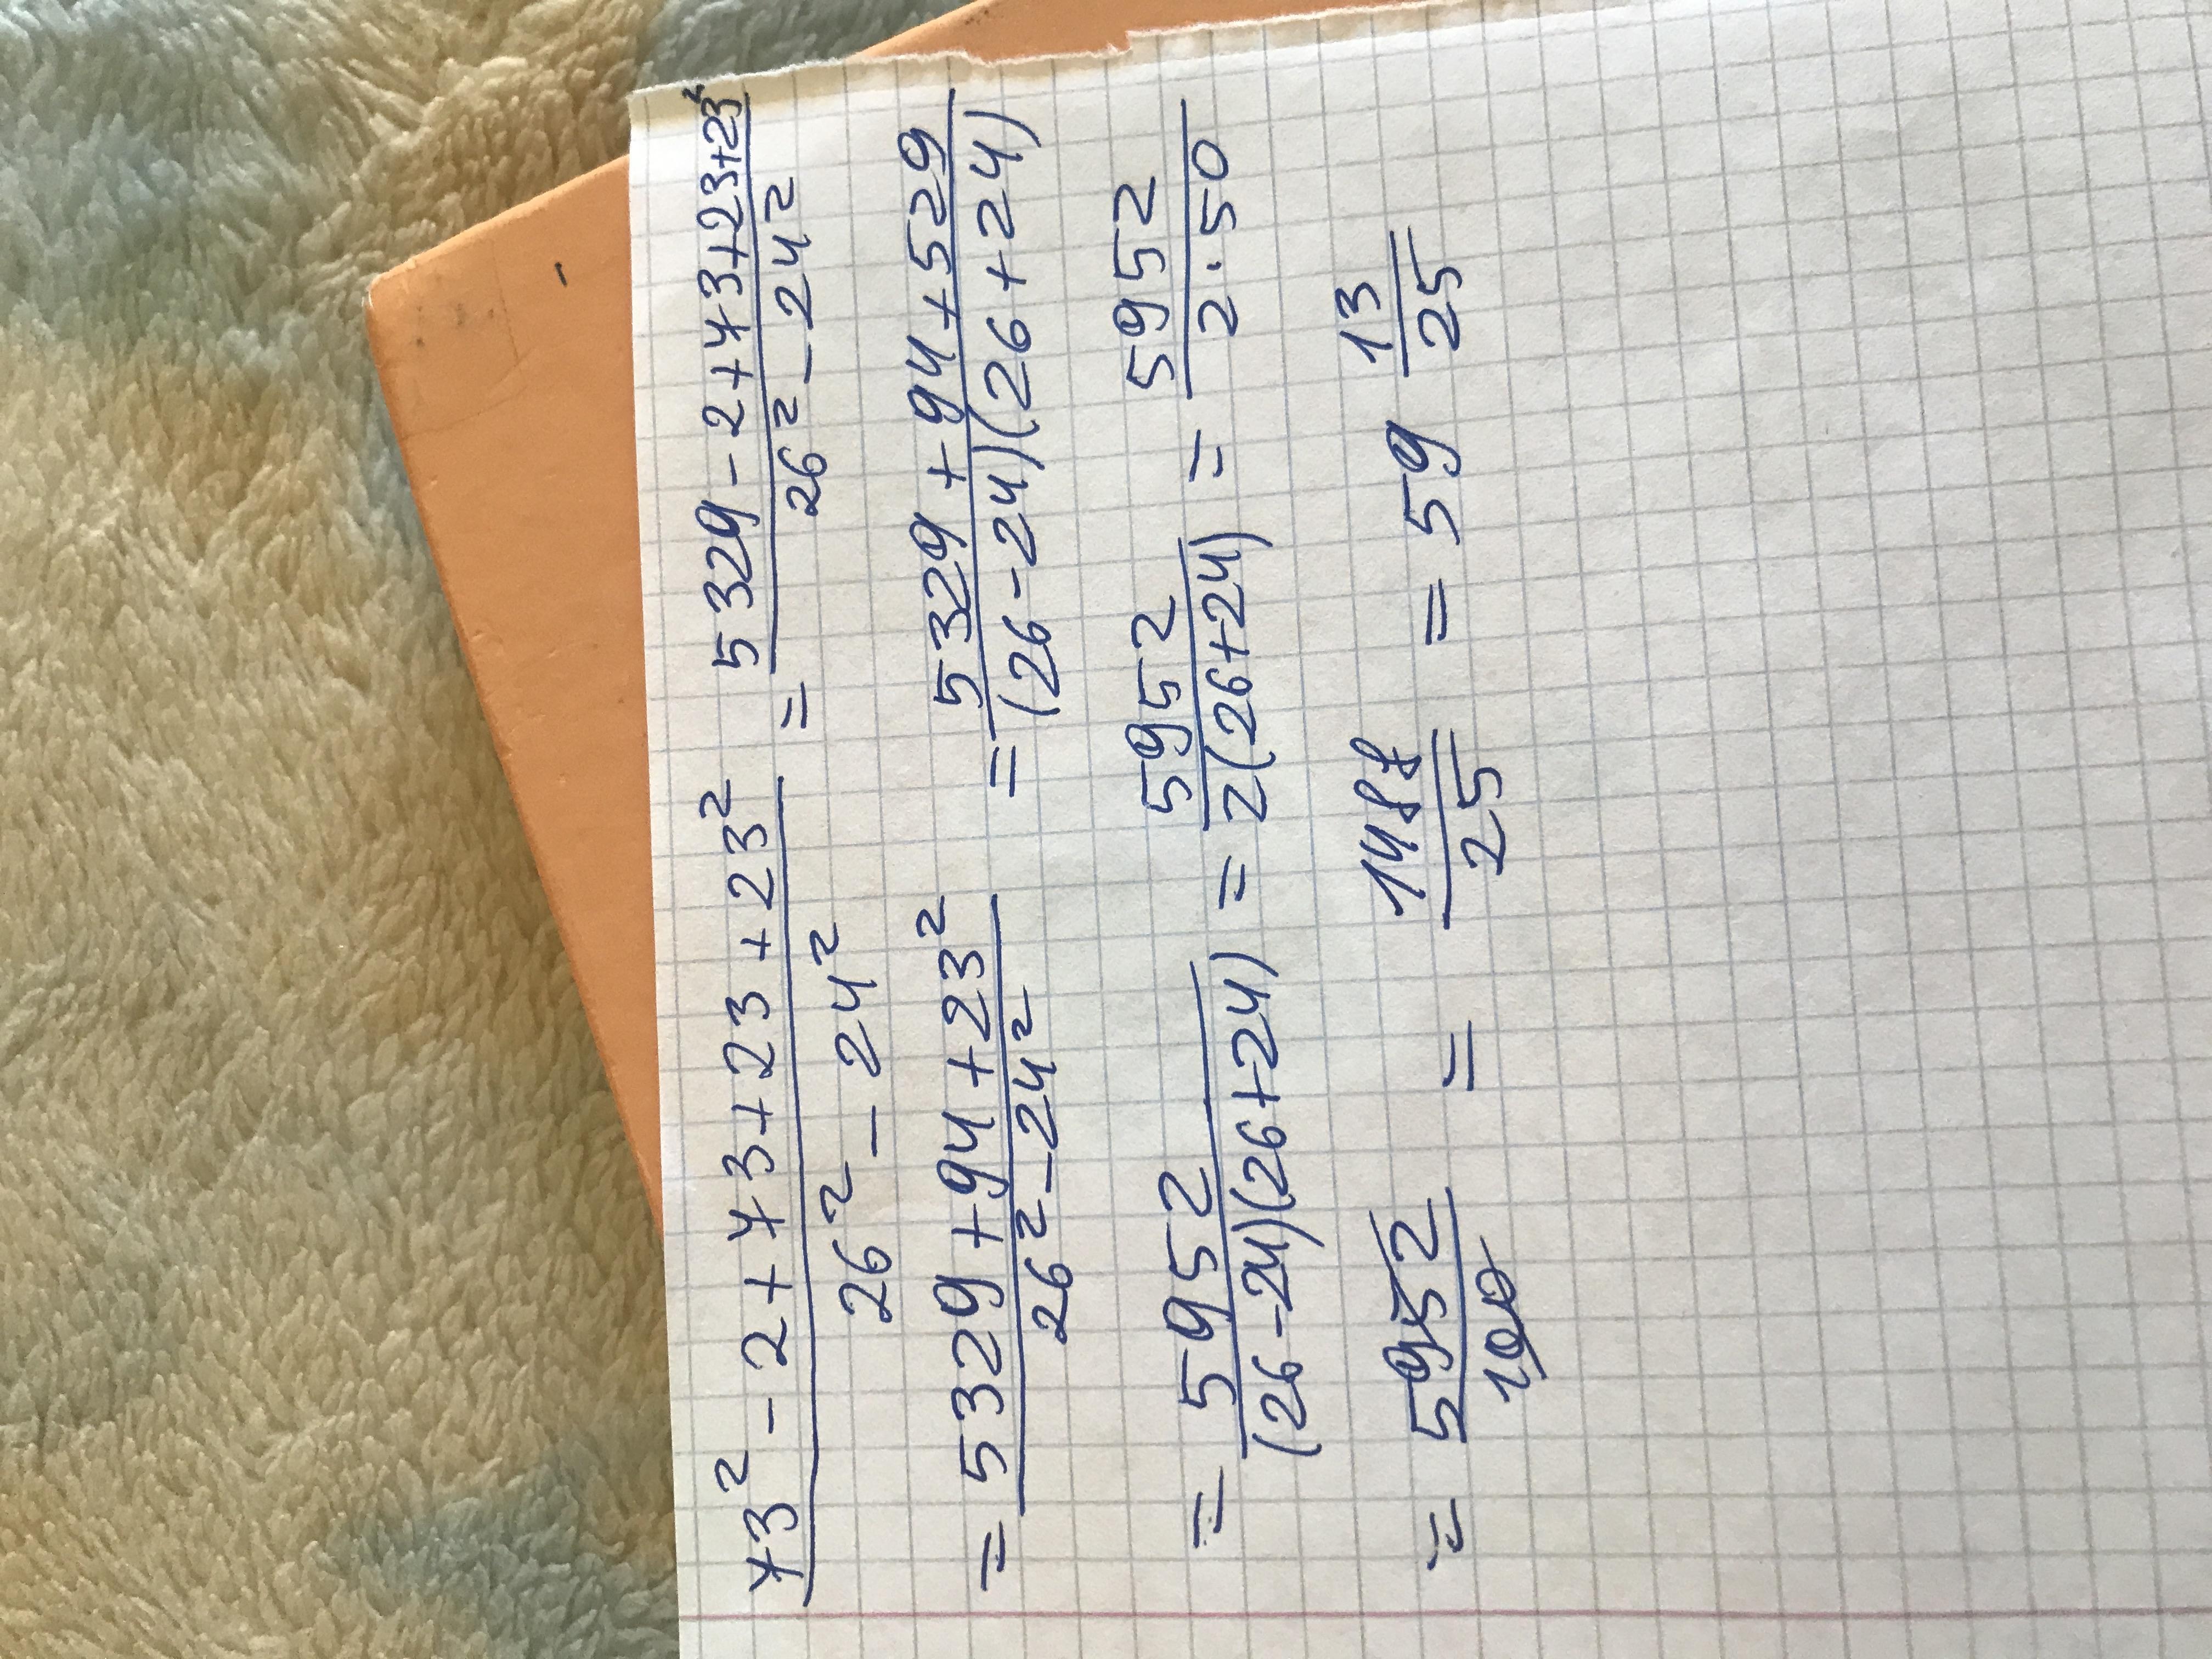 73² - 2 + 73 + 23 + 23² / 26² - 24² = 5329 - 2 + 73 + 23 + 23² / 26² - 24²
= 5329 + 94 + 23² / 26² - 24² = 5329 + 94 + 529 / (26 - 24)(26 + 24)
= 5952 / (26 - 24)(26 + 24) = 5952 / 2(26 + 24) = 5952 / 2 · 50
= 5952 / 100 = 1488 / 25 = 59 13/25